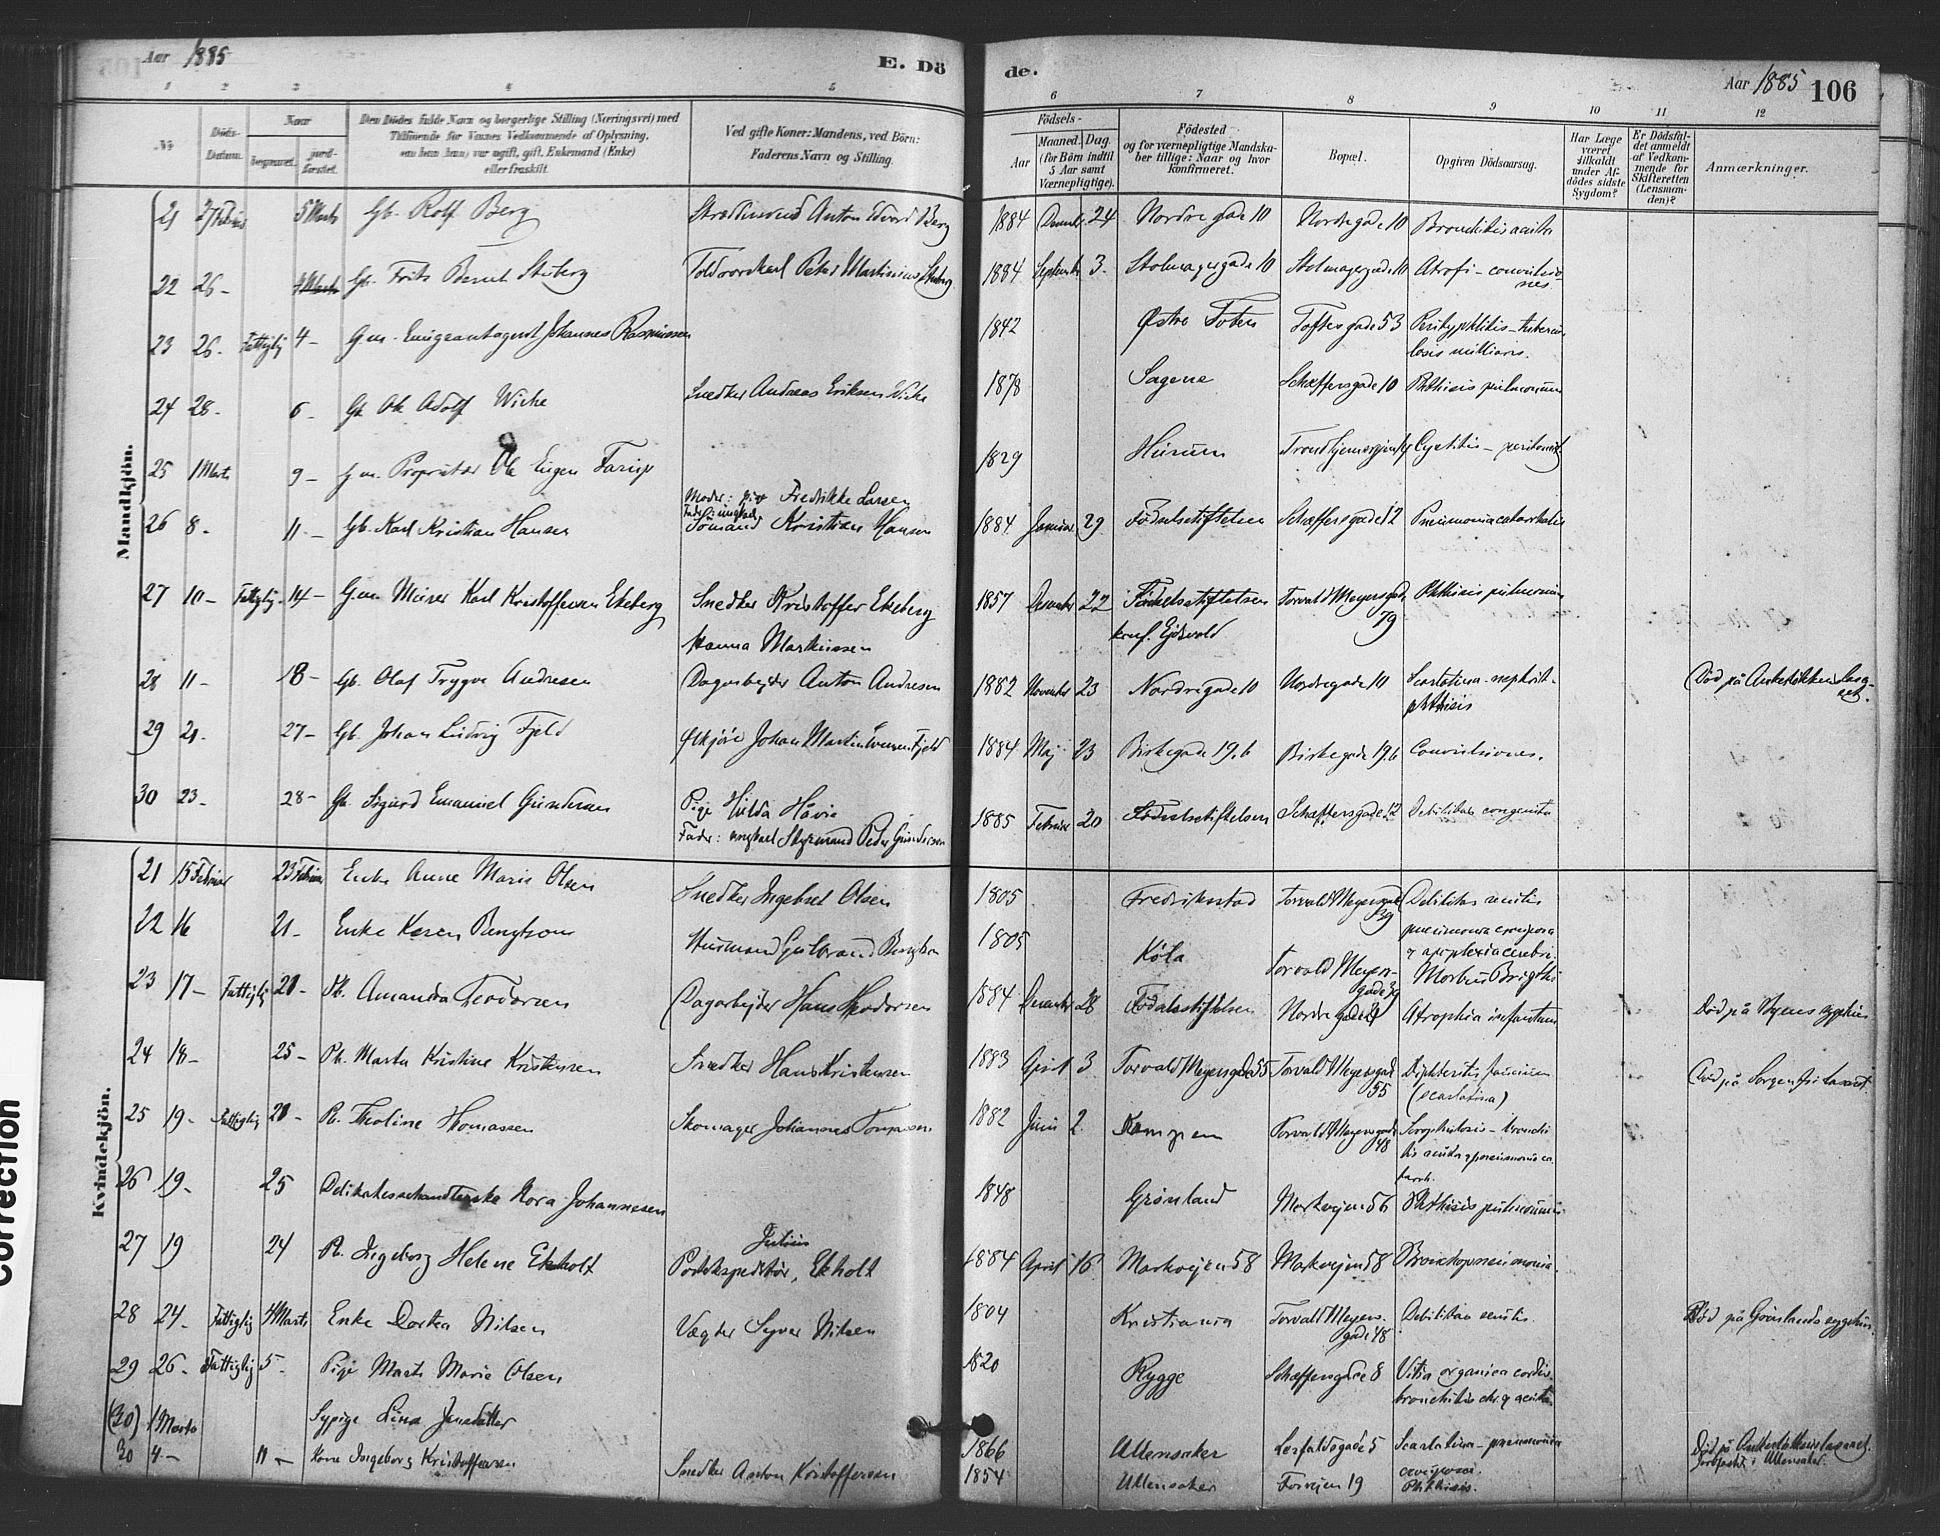 Aar 1885
E. Dö
de.
Aar 1885
106
1 2 3 4 5 6 7 8 9 10 11 12
№
Döds-Datum.
Naar
begravet.
jordfæstet.
Den Dödes fulde Navn og borgerlige Stilling (Næringsvei) med
Tilföiende for Voxnes Vedkommende af Oplysning,
om han (hun) var ugift, gift, Enkemand (Enke)
eller fraskilt.
Ved gifte Koner: Mandens, ved Börn:
Faderens Navn og Stilling.
Födsels-
Aar
Maaned. Dag
(for Börn indtil 5 Aar samt Værnepligtige).
Födested
og for værnepligtige Mandskaber tillige: Naar og hvor konfirmeret.
Bopæl.
Opgiven Dödsaarsag.
Har Læge været tilkaldt under Afdödes sidste Sygdom?
Er Dödsfaldet anmeldt af Vedkommende for Skifteretten (Lensmanden)?
Anmærkninger.
Mandkjön.
21 27 Februar 5 Marts Gb. Rolf Berg Anton Edvard Berg 1884 Decembr. 24 Nordre gade 10 Nordre gade 10 Bronchitis acuta
22 26 - Gb. Frits Bernt Stuberg Peter Martinius Stuberg 1884 September 3. Stolmagergade 10 Stolmagergade 10 Atrofi - convulsiones.
23 26. Fattiglig 4 - Gm. Emigrantagent Johannes Rasmussen 1842 Østre Toten Toftesgade 53 Perityphlitis - tuberculosis miliaris.
24 28. 6 - Gb. Ole Adolf Wiche Snedker Andreas Eriksen Wiche 1878 Sagene Schæffersgade 10 Phthisis pulmonum
25 1 Marts 9 - Gm. Proprietær Ole Eugen 1829 Hurum Cystitis - peritonit
26 8. 11. - Gb. Karl Kristian Hansen Moder: pige Fredrikke Larsen
Fader: ungkarl Sömand Kristian Hansen 1884 Januar 29. Födselsstiftelsen Schæffersgade 12 Pneumonia catarrhalis
27 10 - Fattiglig 14 - Gm. Murer Karl Kristoffersen Ekeberg Snedker Kristoffer Ekeberg
Hanna Markussen 1857 December 22 Födselsstiftelsen
konf. Ejdsvold Torvald Meyersgade 79 Phthisis pulmonum
28 11 - 18 - Gb. Olaf Trygve Andresen Dagarbejder Anton Andresen 1882 November 23 Nordregade 10 Nordregade 10 Scarlatina - nephrit - phthisis Död på Ankerlökkens Lasaret.
29 21. 27 - Gb. Johan Ludvig Fjeld Ølkjöre Johan Martin Evensen Fjeld 1884 Maj 23 Birkegade 19. b Birkegade 19. b Convulsiones.
30 23 - 28 - Gb. Sigurd Emanuel Gundersen Pige Hilda Håvie
Fader: ungkarl Styrmand Peder Gundersen 1885 Februar 20 Födselsstiftelsen Schæffersgade 12 Debilitas congenita
Kvindekjön.
21 15 Februar 23 Februar Enke Anne Marie Olsen Snedker Ingebret Olsen 1805 Fredrikstad Torvald Meyersgade 39 Debilitas senilis
22 16 21 - Enke Karen Bengtson Husmand Gulbrand Bengtson 1805 Köla Torvald Meyersgade 39 pneumonia crouposa & apoplexia cerebri. Morbus Brigthi
23 17 - Fattiglig 21 - Pb. Amanda Teodorsen Dagarbejder Hans Theodorsen 1884 December 28 Födselsstiftelsen Nordre gade Atrophia infantum Död på Byens sygehus
24 18 - 25 - Pb. Marta Kristine Kristensen Snedker Hans Kristensen 1883 April 3 Torvald Meyersgade 55 Torvald Meyersgade 55 Diphtheritis faucium
(scarlatina) Död på Sorgenfri Lasaret
25 19 - Fattiglig 21 - Pb. Teoline Thomassen Skomager Johannes Tomassen 1882 Juni 2. Kampen Torvald Meyersgade 48 Scrophulosis - bronchitis acuta & pneumonia catarrh.
26 19. 25 Delikatessehandlerske Nora Johannesen 1848 Grönland Markvejen 56 Phthisis pulmonum
27 19 24 Pb. Ingeborg Helene Ekholt Postekspeditör, Julius Ekholt 1884 April 16. Markvejen 58 Markvejen 58 Bronchopneumonia.
28 24. Fattiglig 4 Marts Enke Dortea Nilsen Vægter Syver Nilsen 1804 Kristiania Torvald Meyersgade 48 Debilitas senilis. Död på Grönlands sygehus.
29 26 - Fattiglig 5 - Pige Marte Marie Olsen 1820 Rygge Schæffersgade 8 Vitia organica cordis.
bronchitis chr. & acuta.
(30) 1 Marts Sypige Lina Jensdatter 1866 Ullensaker 5 Scarlatina - pneumonia crouposa. Död på Ankerlökkens lasaret.
Jordfæstet i Ullensaker.
30 4. - 11 - Kone Ingeborg Kristoffersen Snedker Anton Kristoffersen 1854 Ullensaker Forvejen 19 Phthisis.
Correction